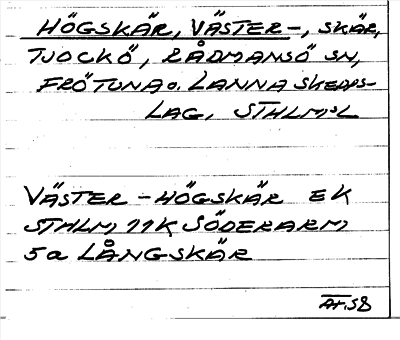 HÖGSKÄR, VÄSTER-, SKÄR,
TJOCKÖ, RÅDMANSÖ SN,
FRÖTUNA o. LANNA SKEPPS-
LAG, STHLMS L
VÄSTER-HÖGSKÄR EK
STHLM 11K SÖDERARM
5a LÅNGSKÄR
AF.58